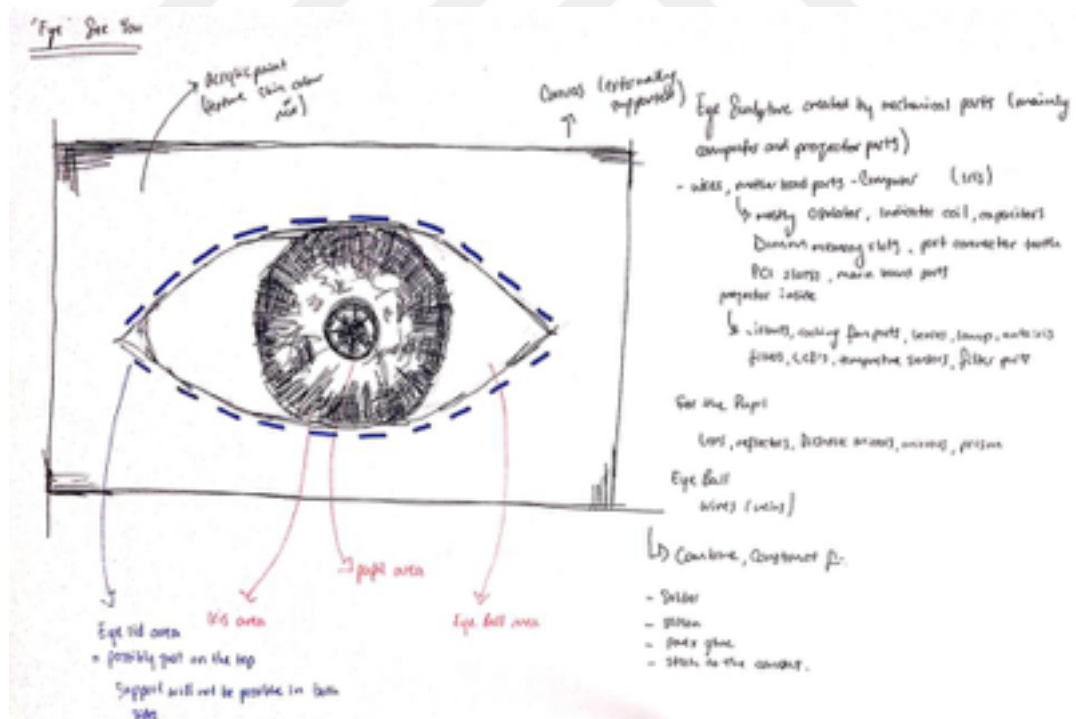 'Eye' See You
Acrylic paint
(texture skin colour
Canvas (externally
supported)
Eye Sculpture created by mechanical parts (mainly
computer and projector parts)
- wires, mother board parts - Computer (iris)
mostly indicator coil, capacitors
memory slots, port connector
PCI slots, main board parts
projector inside
cooling fan parts, lenses, lamp,
temperature sensors, filter part
For the Pupil
Lens, reflectors, Dichroic mirrors, mirrors, prism
Eye Ball
wires (veins)
Combine, Construct
- Solder
- glue
- stitch to the canvas.
pupil area
Iris area
Eye ball area
Eye lid area
- possibly just on the top
Support will not be possible in both
sides